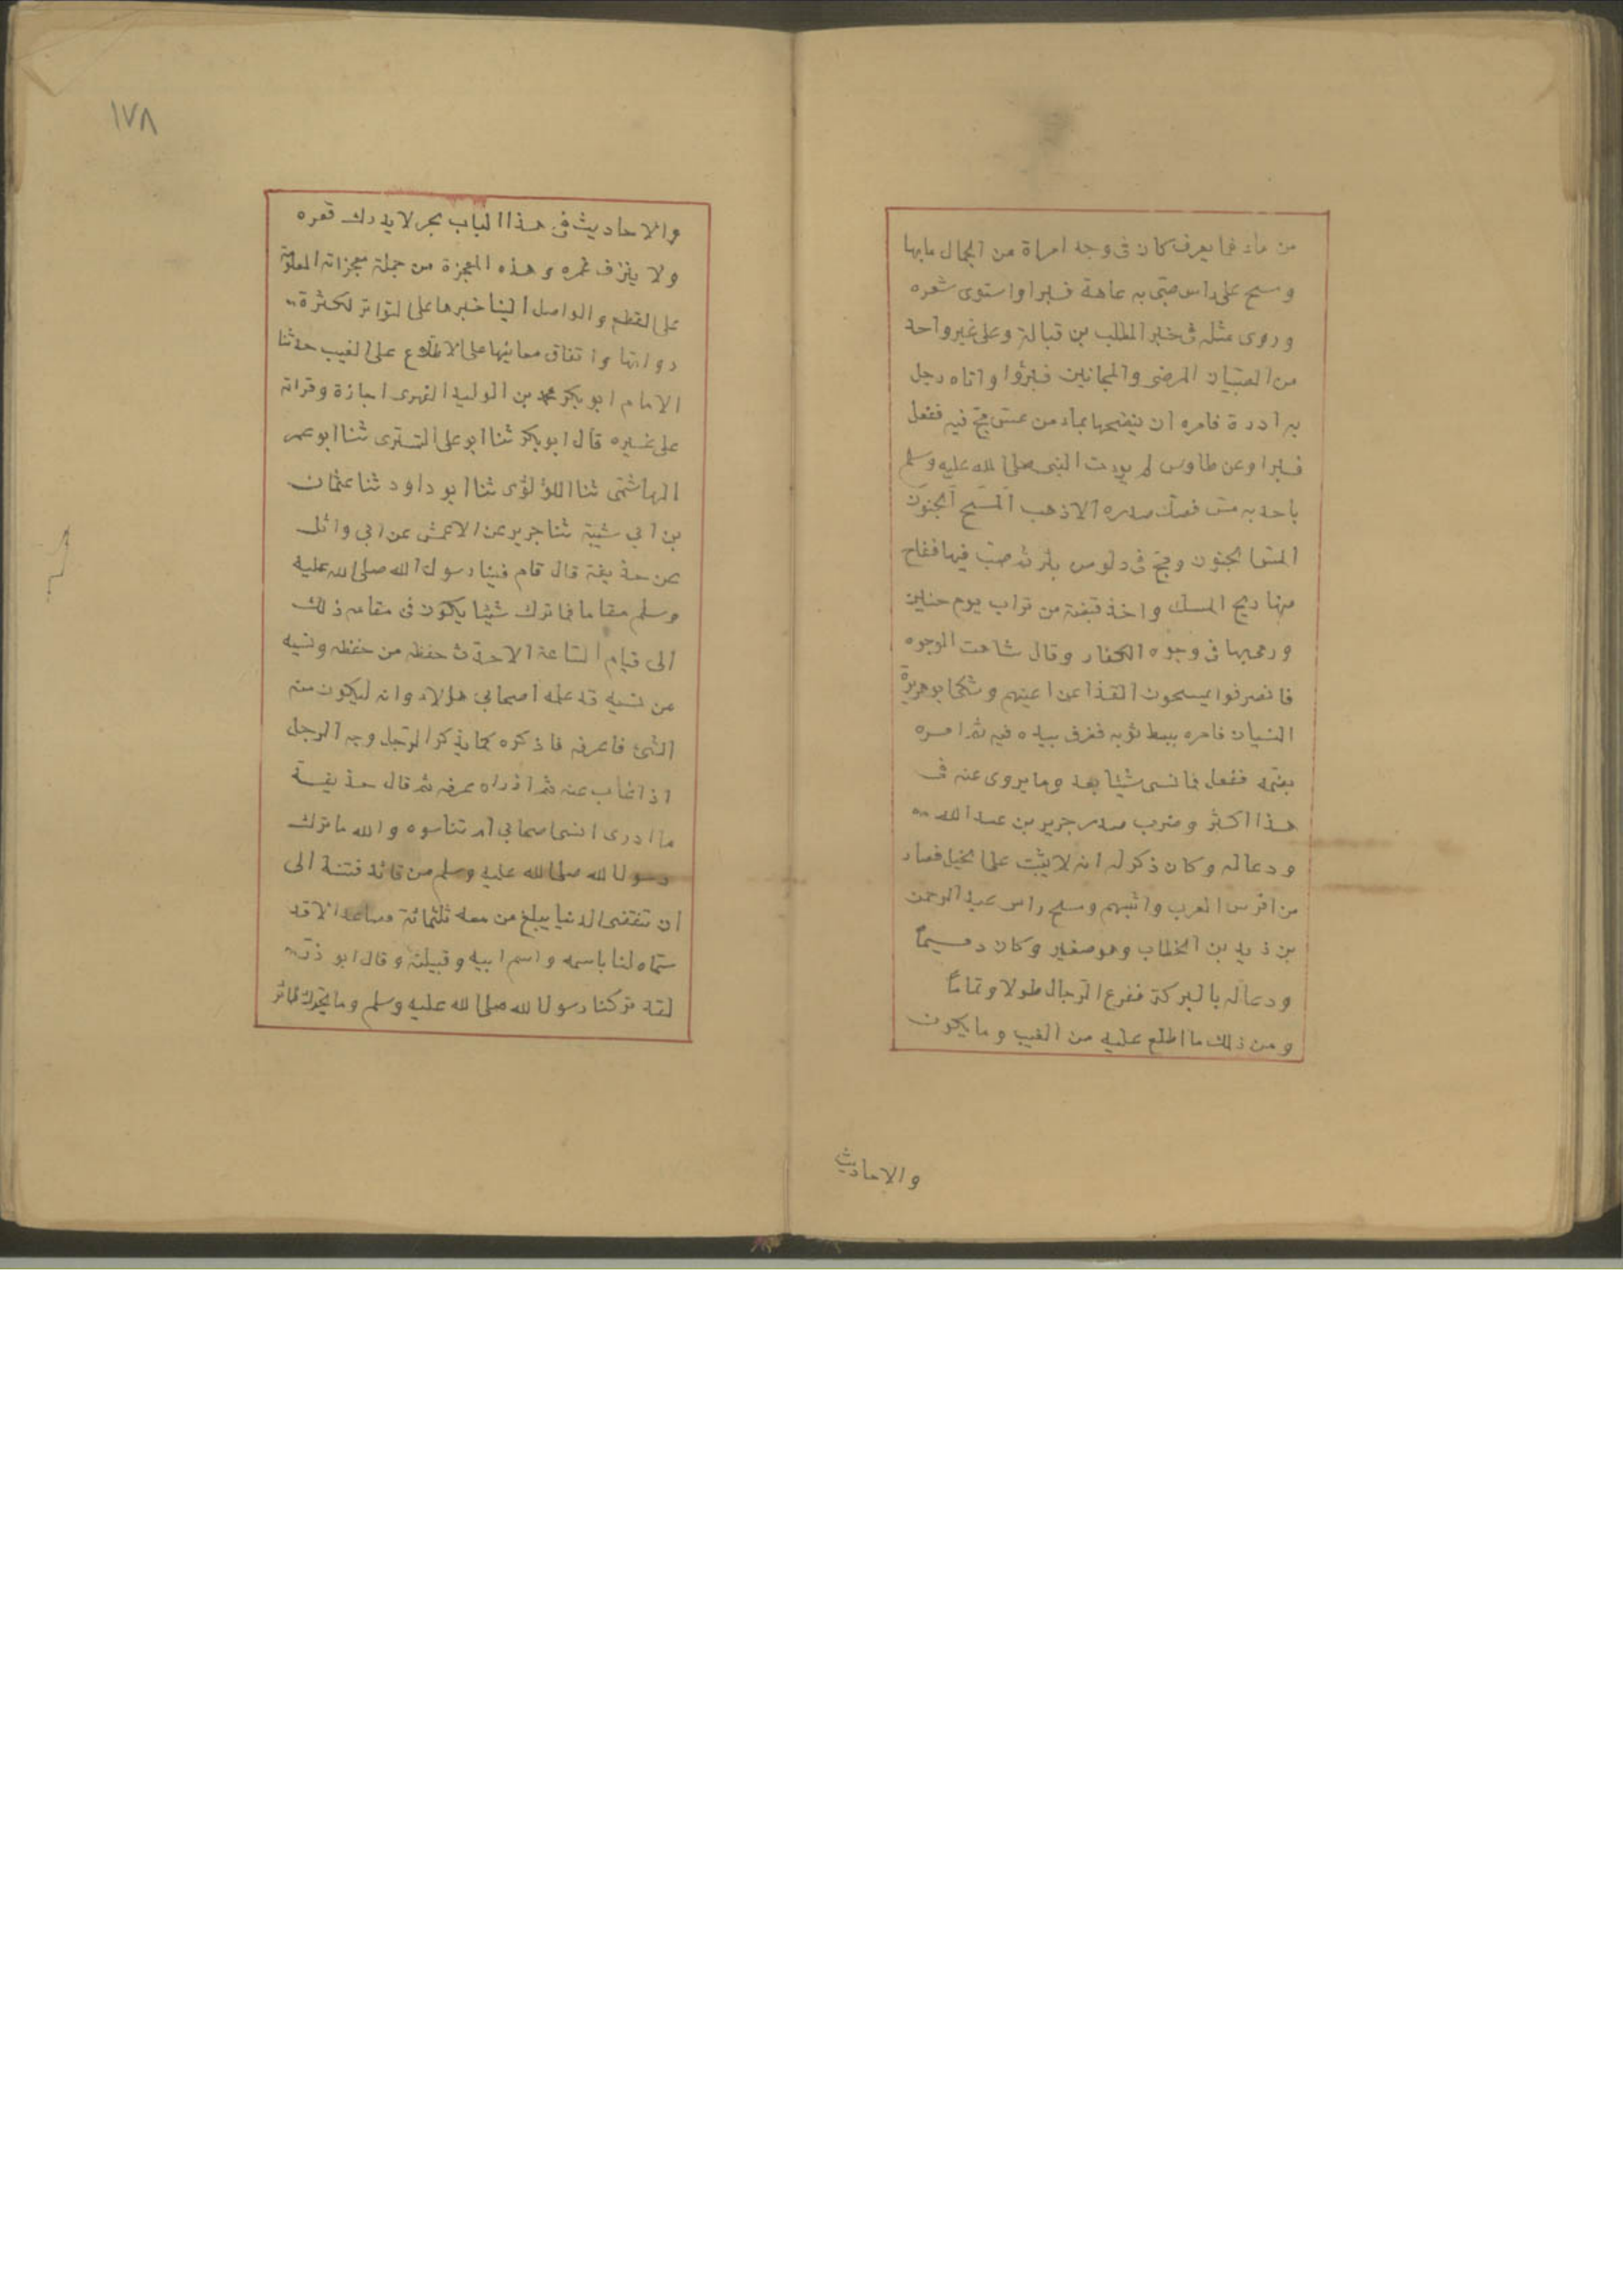 من ماء فما يعرف كان فى وجه امراة من الجمال مابها
ومسح على راس صبى به عاهة فبرا واستوى شعره
وروى مثله فى خبر المطلب بن قبالة وعلى غير واحد
من الصبيان المرضى والمجانين فبرؤا واتاه رجل
به اددة فامره ان ينضحها بماء من عين مج فيه ففعل
فبرا وعن طاوس لم يؤت النبى صلى الله عليه وسلم
باحد به مس فصك صدره الا ذهب المسح الجنون
المس الجنون ومج فى دلو من بئر ثم صب فيها ففاح
منها ريح المسك واخذ قبضة من تراب يوم حنين
ورمى بها فى وجوه الكفار وقال شاهت الوجوه
فانصرفوا يمسحون القذا عن اعينهم وشكا ابو هريرة
النسيان فامره ببسط ثوبه فغرف بيده فيه ثم امره
بضمه ففعل فما نسى شيئا بعد وما يروى عنه فى
هذا اكثر وضرب صدر جرير بن عبد الله
ودعا له وكان ذكر له انه لا يثبت على الخيل فصار
من افرس العرب واثبتهم ومسح راس عبد الرحمن
بن زيد بن الخطاب وهو صغير وكان دميماً
ودعا له بالبركة ففرع الرجال طولا وتماماً
ومن ذلك ما اطلع عليه من الغيب وما يكون
والاحاديث
١٧٨
والاحاديث فى هذا الباب بحر لا يدرك قعره
ولا ينزف غمره وهذه المعجزة من جملة معجزاته المعلومة
على القطع والواصل الينا خبرها على التواتر لكثرة
رواتها واتفاق معانيها على الاطلاع على الغيب حدثنا
الامام ابو بكر محمد بن الوليد الفهرى اجازة وقراته
على غيره قال ابو بكر ثنا ابو على التسترى ثنا ابو عمر
الهاشمى ثنا اللؤلؤى ثنا ابو داود ثنا عثمان
بن ابي شيبة ثنا جرير عن الاعمش عن ابي وائل
عن حذيفة قال قام فينا رسول الله صلى الله عليه
وسلم مقاما فما ترك شيئا يكون فى مقامه ذلك
الى قيام الساعة الا حدث حفظه من حفظه ونسيه
من نسيه قد علمه اصحابي هؤلاء وانه ليكون منه
الشئ فاعرفه فاذكره كما يذكر الرجل وجه الرجل
اذا غاب عنه ثم اذراه عرفه ثم قال حذيفة
ما ادرى انسى اصحابي ام تناسوه والله ما ترك
رسول الله صلى الله عليه وسلم من قائد فتنة الى
ان تنقضى الدنيا يبلغ من معه ثلثمائة فصاعدا الا قد
سماه لنا باسمه واسم ابيه وقبيلته وقال ابو ذر
لقد تركنا رسول الله صلى الله عليه وسلم وما يحرك طائر